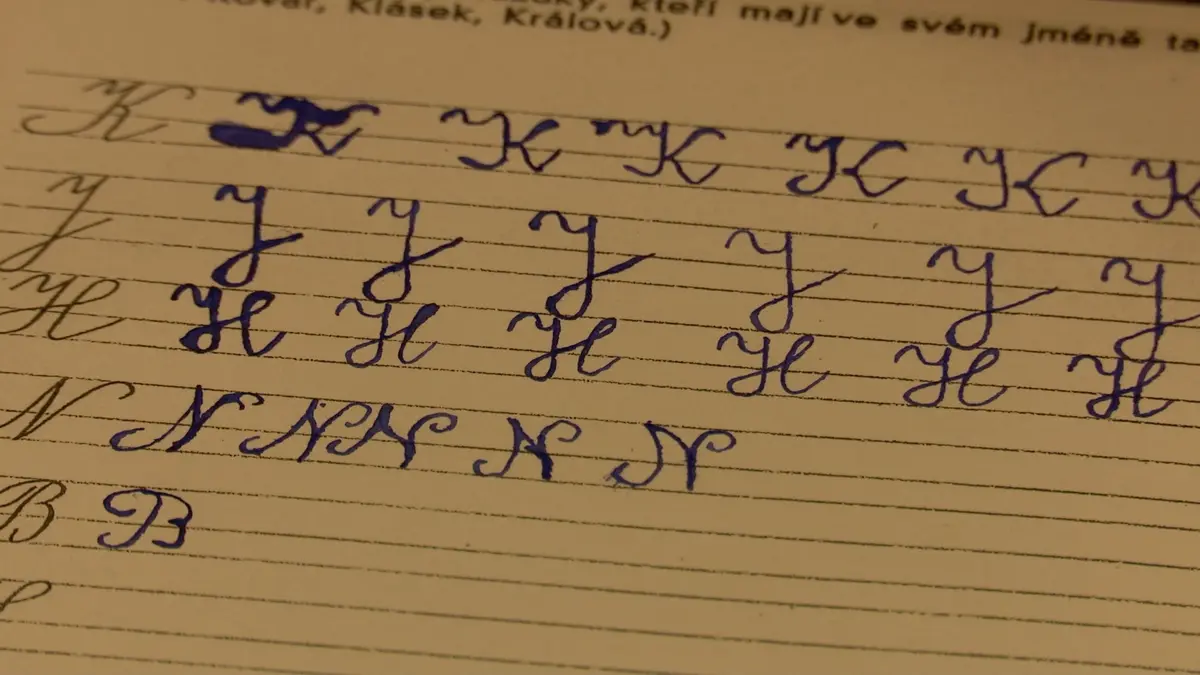 kteří mají ve svém jméně
Klásek, Králová.)
K K K K K K K
Y Y Y Y Y Y Y
H H H H H H H
N N N N N N
B B